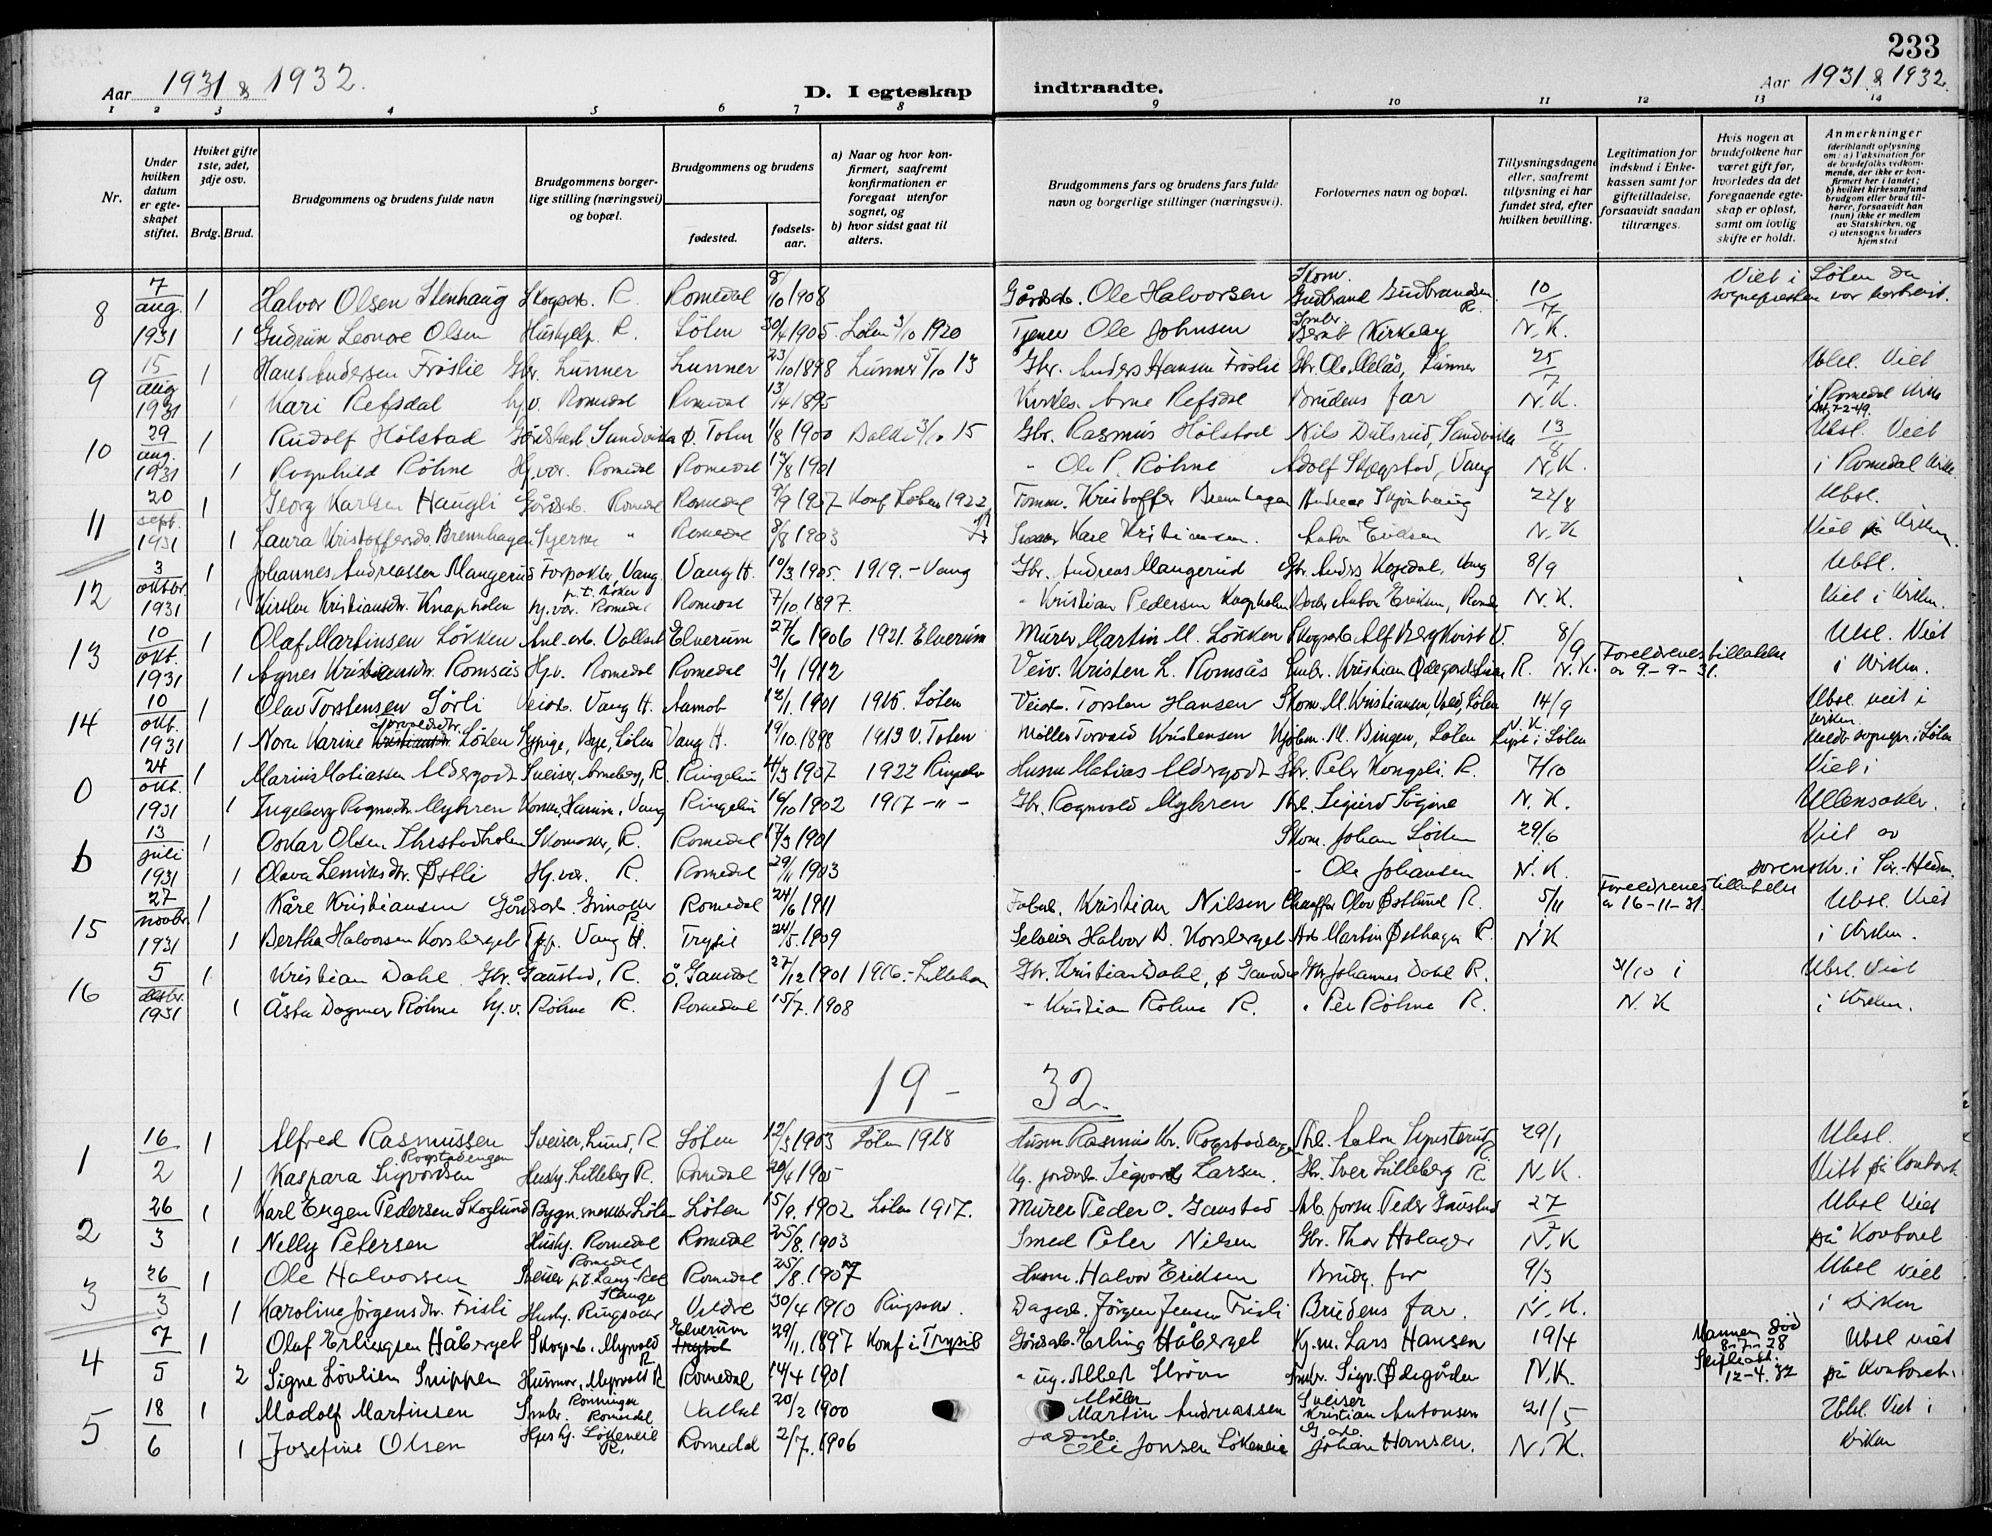 233
Aar 1931 & 1932.
D. I egteskap
indtraadte.
Aar 1931 & 1932.
1 2 3 4 5 6 7 8 9 10 11 12 13 14
Nr.
Under hvilken datum er egteskapet stiftet.
Hviket gifte 1ste, 2det, 3dje osv.
Brdg. Brud.
Brudgommens og brudens fulde navn
Brudgommens borgerlige stilling (næringsvei) og bopæl.
Brudgommens og brudens
fødested.
fødselsaar.
a) Naar og hvor konfirmert, saafremt konfirmationen er foregaat utenfor sognet, og
b) hvor sidst gaat til alters.
Brudgommens fars og brudens fars fulde navn og borgerlige stillinger (næringsvei).
Forlovernes navn og bopæl.
Tillysningsdagene eller, saafremt tillysning ei har fundet sted, efter hvilken bevilling.
Legitimation for indskud i Enkekassen samt for giftetilladelse, forsaavidt saadan tiltrænges.
Hvis nogen av brudefolkene har været gift før, hvorledes da det foregaaende egteskap er opløst, samt om lovlig skifte er holdt.
Anmerkninger (deriblandt oplysning om: a) Vaksination for de brudefolks vedkommende, der ikke er konfirmert her i landet; b) hvilket kirkesamfund brudgom eller brud tilhører, forsaavidt han (hun) ikke er medlem av Statskirken, og c) utensogns bruders hjemsted
8 7/aug. 1931 1 Halvor Olsen Stenhaug Skogsarb. R. Romedal 8/10 1908 Gårdsarb. Ole Halvorsen Skom. Gudbrand Gudbrandsen R. 10/7 Viet i Løten da sognepresten var bortreist.
1 Gudrun Leonore Olsen Hushjelp R. Løten 30/4 1905 Løten 3/10 1920 Tjener Ole Johnsen Smbr. Kirkeby N.K.
9 15/aug 1931 1 Hans Andersen Frøslie Gbr. Lunner Lunner 23/10 1898 Lunner 5/10 13 Gbr. Anders Hansen Frøslie Gbr. Ole Melås, Lunner 25/7 Ubsl. Viet
1 Kari Refsdal hj.v. Romedal Romedal 13/4 1895 Arne Refsdal Brudens far N.K. i Romedal kirke
10 29/aug. 1931 1 Rudolf Holstad Sandvika Ø. Toten 1/8 1900 Balke 3/10 15 Gbr. Rasmus Holstad Nils Dulsrud, Sandvika 13/8 Ubsl. Viet
1 Ragnhild Røhne Hj.vær. Romedal Romedal 1901 " Ole P. Røhne Adolf Skjegstad, Vang N.K. i Romedal kirke
11 20/sept. 1931 1 Georg Karlsen Haugli Gårdsarb. Romedal Romedal 9/9 1907 Konf Løten 1922 Tømm. Kristoffer Brennhagen Andreas 22/8 Ubsl.
1 Laura Kristoffersdr. Brennhagen " Romedal 8/8 1903 Karl Kristiansen. Anton N.K Viet i kirken.
12 3/oktbr. 1931 1 Johannes Andreassen Mangerud Forpakter, Vang. Vang H. 10/3 1905. 1919.- Vang Gbr. Andreas Mangerud Gbr. Anders Vang 8/9 Ubsl.
1 Kirsten Kristiansdr. Knapholen hj.vær. Romedal Romedal 7/10 1897 " Kristian Pedersen Knapholen Anton Eriksen, Romedal N.K. Viet i kirken.
13 10/okt. 1931 1 Olaf Martinsen Løkken Vallset Elverum 27/6 1906 1921. Elverum Murer Martin M. Løkken Skogsarb. Alf Bergkvist V. 8/9 Ubsl. Viet
1 Agnes Kristiansdr. Romsås Hj.v. Romedal Romedal 3/1 1912 Veiv. Kristen L. Romsås Smbr. Kristian R. N.K. Foreldrenes tillatelse av 9-9-31. i kirken.
14 10/okt. 1931 1 Olav Torstensen Sørli Veiarb. Vang H. Aamot 12/1 1901 1915. Løten Veiarb. Torsten Hansen Skom. M. Kristiansen, Løten 14/9 Ubsl. viet i kirken.
1 Nora Karine Torvaldsdr. Løken Løten Vang H. 19/10 1898 1913 V. Toten Møller Torvald Kristensen M. Bingen, Løten N.K. Lyst i Løten Meldt sognepr. i Løten
0 24/okt. 1931 1 Marius Matiassen Aldergodt Sveiser, Arneberg, R. Ringebu 4/3 1907 1922 Ringebu Husm Matias Aldergodt Gbr. Peter Kongsli R. 7/10 Viet i
1 Ingeborg Ragnvaldsdr. Myhren Vang Ringebu 16/10 1902 1917 -"- Gbr. Ragnvald Myhren Sigurd N.K. Ullensaker.
b 13/juli 1931 1 Oskar Olsen Skomaker, R. Romedal 17/3 1901 Skom. Johan Løken 29/6 Viet av
1 Olava Østli Hj.vær. R. Romedal 29/11 1903 " Ole Johansen N.K. sorenskr. i Sør-Hedm.
15 27/novbr. 1931 1 Kåre Kristiansen Gårdsarb. Grimøller R. Romedal 24/6 1911 Kristian Nilsen Chauffør Olav Østlund R. 5/11 Foreldrenes tillatelse av 16-11-31. Ubsl. Viet
1 Bertha Halvorsen Korsberget Tjp. Vang H. Trysil 24/5 1909 Selveier Halvor B. Korsberget Arb. Martin Østhagen R. N.K i kirken.
16 5/desbr. 1931 1 Kristian Dahl Gbr. Gaustad, R. Ø. Gausdal 27/12 1901 1916.- Lillehammer Gbr. Kristian Dahl, Ø Gausdal Gbr Johannes Dahl R. 31/10 i Ubsl. Viet
1 Åsta Dagmar Røhne hj.v. Røhne R. Romedal 15/7. 1908 " Kristian Røhne R. " Per Røhne R. N.K i kirken.
19 - 32.
1 16/2 1 Alfred Rasmussen Rogstadengen Sveiser, Lund, R Løten 12/3 1903 Løten 1918 Husm Rasmus Kr. Rogstadengen Anton R. 29/1 Ubsl.
1 Kaspara Sigvardsen Hushj. Lilleberg R. Romedal 20/4 1905 Sigvard Larsen. Gbr. Iver Lilleberg R. N.K. Viet på kontoret
2 26/3 1 Karl Eugen Pedersen Skoglund Løten Løten 15/9. 1902 Løten 1917. Murer Peder O. Gaustad Arb. form. Peder Gaustad 27/2 Ubsl Viet
1 Nelly Petersen Hushj. Romedal Romedal 25/8. 1903 Smed Peter Nilsen Gbr. Thor Holager N.K på kontoret
3 26/3 1 Ole Halvorsen Sveiser Romedal p.t. Stange Romedal 25/8. 1907 Husm. Halvor Eriksen Brudg. far 9/3 Ubsl viet
1 Karoline Jørgensdr. Frisli Hushj. Ringsaker Veldre 30/4 1910 Ringsaker. Dagarb. Jørgen Jensen Frisli Brudens far. N.K. i kirken
4 7/5 1 Olaf Erlingsen Håberget Skogsarb. Myrvold R. Elverum 29/11. 1897 Konf i Trysil Gårdsarb. Erling Håberget Lars Hansen 19/4 Mannen død 8-7-28 Ubsl viet
2 Signe Løvlien Snippen Myrvold R Romedal 14/4 1901 " ug. Albert Strøm Smbr. Sigv. Ødegården N.K. Skifteatt. 12-4.32 på kontoret.
5 18/6 1 Madolf Martinsen Smbr. Rønningen Romedal Vallset 20/2 1900 Møller Martin Andreassen Sveiser Kristian Antonsen 21/5 Ubsl. Viet i
1 Josefine Olsen Hushj. Løkeneie R. Romedal 2/7. 1906 Ole Jonsen Løkeneie Johan Hansen. N.K. kirken